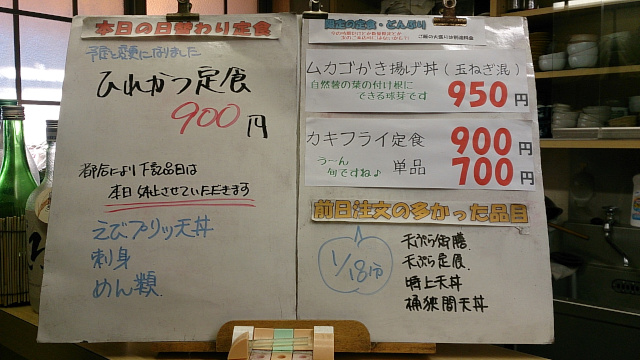 本日の日替わり定食
予定と変更になりました
ひれかつ定食
900円
都合により下記品目は
本日休止させていただきます
えびプリッ天丼
刺身
めん類
限定の定食・どんぶり
ご飯の大盛りは別途料金
ムカゴかき揚げ丼(玉ねぎ混)
自然薯の葉の付け根に
できる球芽です
950円
カキフライ定食 900円
う〜ん
旬ですね♪
単品 700円
前日注文の多かった品目
1/18(市)
天ぷら御膳
天ぷら定食
特上天丼
桶狭間天丼